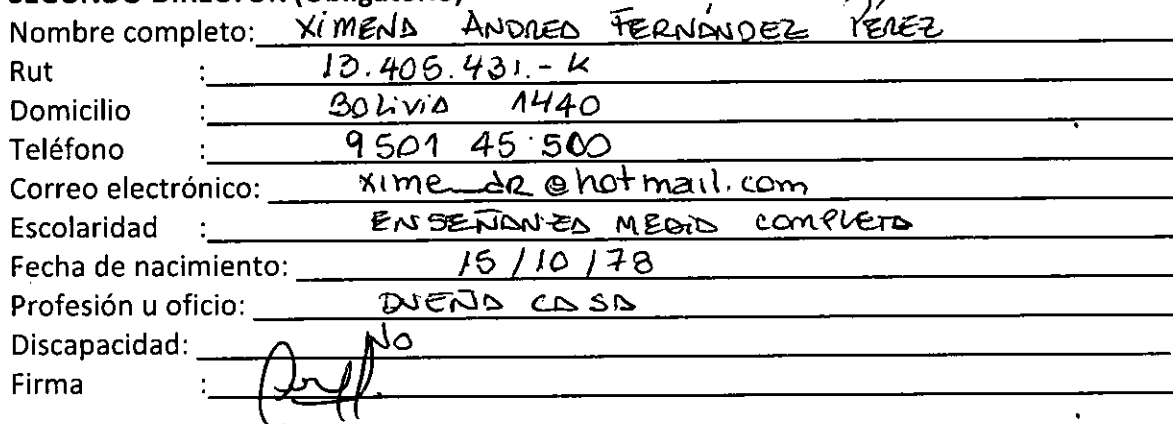 SEGUNDO DIRECTOR (Obligatorio)
Nombre completo: XIMENA ANDREA FERNÁNDEZ PÉREZ
Rut : 13.405.431.-K
Domicilio : BOLIVIA 1440
Teléfono : 9501 45 500
Correo electrónico: xime_dr@hotmail.com
Escolaridad : ENSEÑANZA MEDIA COMPLETA
Fecha de nacimiento: 15/10/78
Profesión u oficio: DUEÑA CASA
Discapacidad: No
Firma :